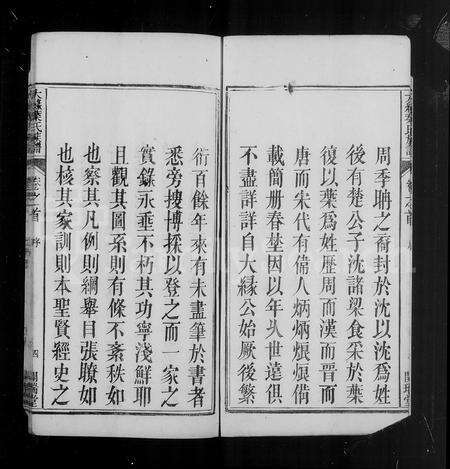 周季聃之裔封於沈以沈爲姓
後有楚公子沈諸梁食采於葉
復以葉爲姓歷周而漢而晋而
唐而宋代有偹人炳炳烺烺備
載簡册眷埜因以年乆世遠俱
不盡詳詳自大緣公始厥後繁
衍百餘年來有未盡筆於書者
悉旁搜博採以登之而一家之
實錄永垂不朽其功寧淺鮮耶
且觀其圖系則有條不紊秩如
也察其凡例則綱舉目張瞭如
也核其家訓則本聖賢經史之
卷之首
序
四